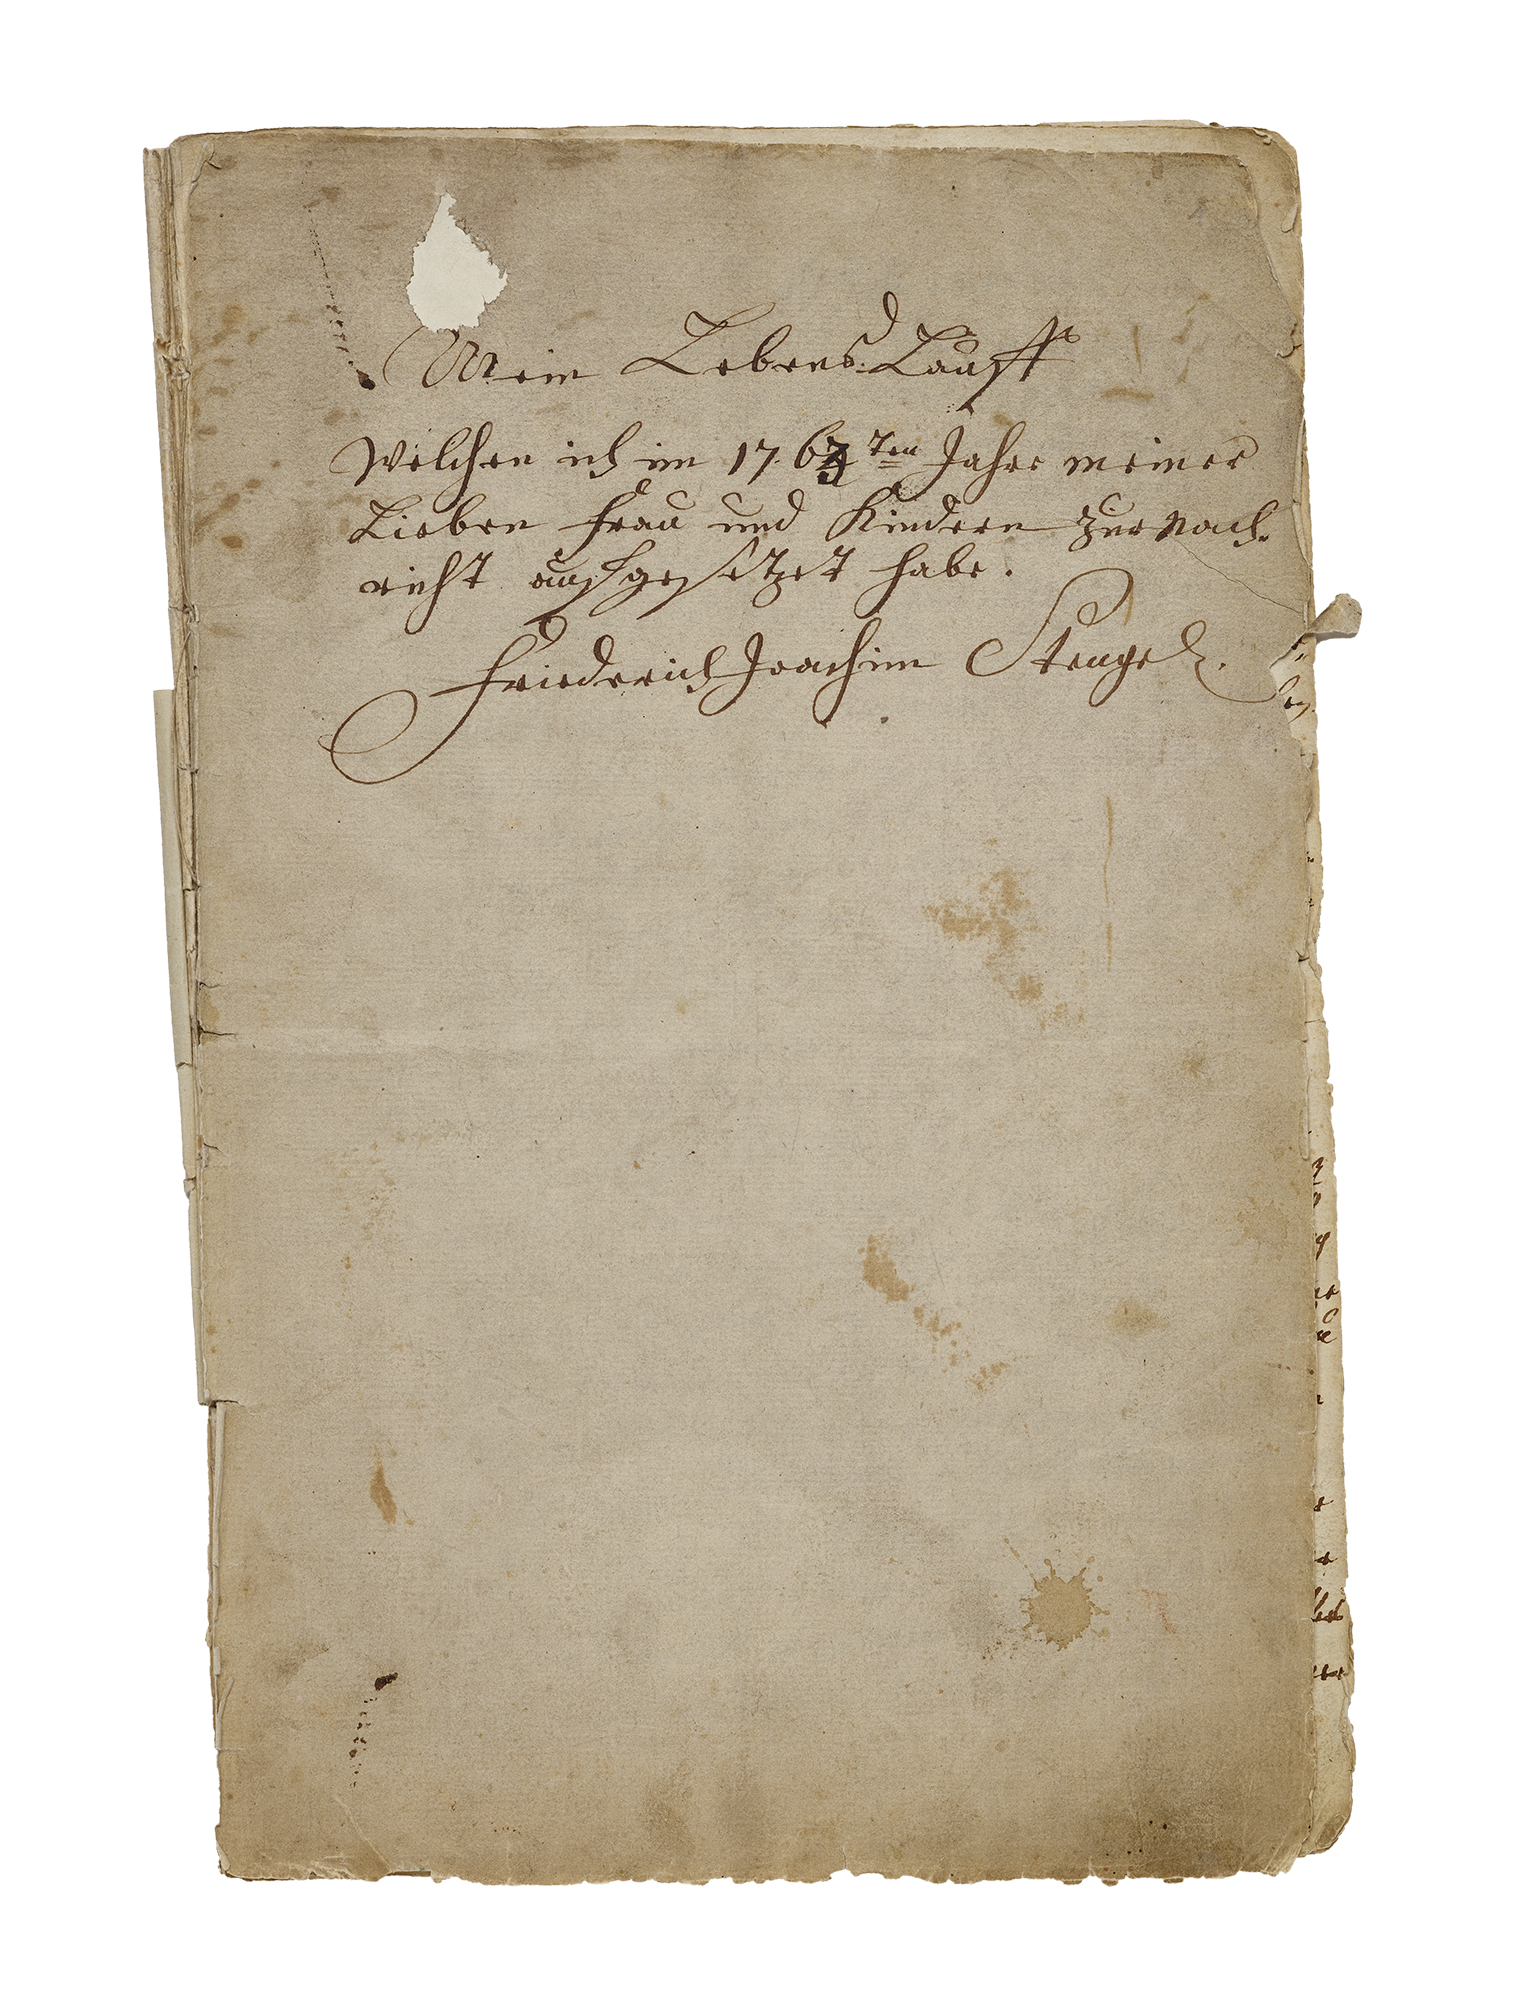 Mein Lebens-Lauff
Welchen ich im 1763ten Jahre meiner
Lieben Frau und Kindern zur Nach-
richt aufgesetzet habe.
Friederich Joachim Stengel.